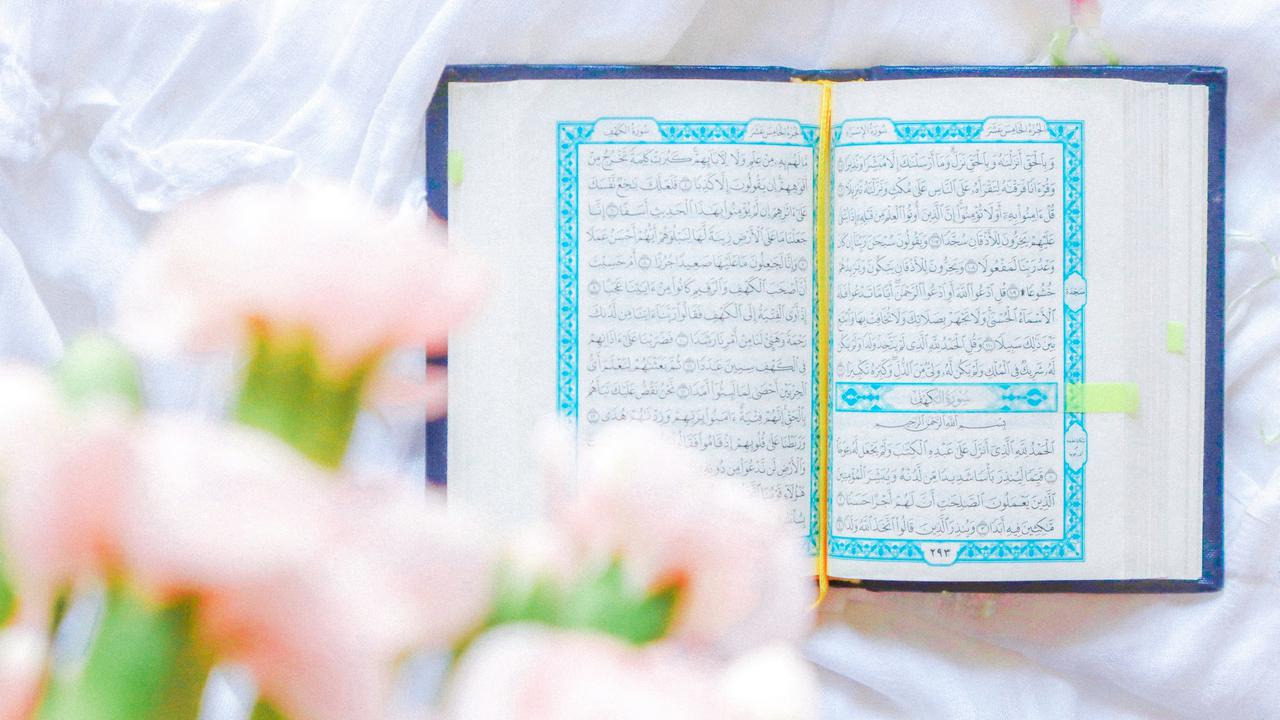 الجزء الخامس عشر
سورة الإسراء
وَبِالْحَقِّ أَنزَلْنَاهُ وَبِالْحَقِّ نَزَلَ وَمَا أَرْسَلْنَاكَ إِلَّا مُبَشِّرًا وَنَذِيرًا
وَقُرْءَانًا فَرَقْنَاهُ لِتَقْرَأَهُ عَلَى النَّاسِ عَلَىٰ مُكْثٍ وَنَزَّلْنَاهُ تَنزِيلًا
قُلْ ءَامِنُوا بِهِ أَوْ لَا تُؤْمِنُوا إِنَّ الَّذِينَ أُوتُوا الْعِلْمَ مِن قَبْلِهِ إِذَا يُتْلَىٰ
عَلَيْهِمْ يَخِرُّونَ لِلْأَذْقَانِ سُجَّدًا ١٠٧ وَيَقُولُونَ سُبْحَانَ رَبِّنَا إِن كَانَ
وَعْدُ رَبِّنَا لَمَفْعُولًا ١٠٨ وَيَخِرُّونَ لِلْأَذْقَانِ يَبْكُونَ وَيَزِيدُهُمْ
خُشُوعًا ۩ ١٠٩ قُلِ ادْعُوا اللَّهَ أَوِ ادْعُوا الرَّحْمَٰنَ أَيًّا مَّا تَدْعُوا فَلَهُ
الْأَسْمَاءُ الْحُسْنَىٰ وَلَا تَجْهَرْ بِصَلَاتِكَ وَلَا تُخَافِتْ بِهَا وَابْتَغِ
بَيْنَ ذَٰلِكَ سَبِيلًا ١١٠ وَقُلِ الْحَمْدُ لِلَّهِ الَّذِي لَمْ يَتَّخِذْ وَلَدًا وَلَمْ يَكُن
لَّهُ شَرِيكٌ فِي الْمُلْكِ وَلَمْ يَكُن لَّهُ وَلِيٌّ مِّنَ الذُّلِّ وَكَبِّرْهُ تَكْبِيرًا
سورة الكهف
بِسْمِ اللَّهِ الرَّحْمَٰنِ الرَّحِيمِ
الْحَمْدُ لِلَّهِ الَّذِي أَنزَلَ عَلَىٰ عَبْدِهِ الْكِتَابَ وَلَمْ يَجْعَل لَّهُ عِوَجًا
١ قَيِّمًا لِّيُنذِرَ بَأْسًا شَدِيدًا مِّن لَّدُنْهُ وَيُبَشِّرَ الْمُؤْمِنِينَ
الَّذِينَ يَعْمَلُونَ الصَّالِحَاتِ أَنَّ لَهُمْ أَجْرًا حَسَنًا ٢
مَّاكِثِينَ فِيهِ أَبَدًا ٣ وَيُنذِرَ الَّذِينَ قَالُوا اتَّخَذَ اللَّهُ وَلَدًا ٤
سجدة
٢٩٣
الجزء الخامس عشر
سورة الكهف
مَّا لَهُم بِهِ مِنْ عِلْمٍ وَلَا لِآبَائِهِمْ كَبُرَتْ كَلِمَةً تَخْرُجُ مِنْ
أَفْوَاهِهِمْ إِن يَقُولُونَ إِلَّا كَذِبًا ٥ فَلَعَلَّكَ بَاخِعٌ نَّفْسَكَ
عَلَىٰ ءَاثَارِهِمْ إِن لَّمْ يُؤْمِنُوا بِهَٰذَا الْحَدِيثِ أَسَفًا ٦ إِنَّا
جَعَلْنَا مَا عَلَى الْأَرْضِ زِينَةً لَّهَا لِنَبْلُوَهُمْ أَيُّهُمْ أَحْسَنُ عَمَلًا
٧ وَإِنَّا لَجَاعِلُونَ مَا عَلَيْهَا صَعِيدًا جُرُزًا ٨ أَمْ حَسِبْتَ
أَنَّ أَصْحَابَ الْكَهْفِ وَالرَّقِيمِ كَانُوا مِنْ ءَايَاتِنَا عَجَبًا ٩
إِذْ أَوَى الْفِتْيَةُ إِلَى الْكَهْفِ فَقَالُوا رَبَّنَا ءَاتِنَا مِن لَّدُنكَ
رَحْمَةً وَهَيِّئْ لَنَا مِنْ أَمْرِنَا رَشَدًا ١٠ فَضَرَبْنَا عَلَىٰ ءَاذَانِهِمْ
فِي الْكَهْفِ سِنِينَ عَدَدًا ١١ ثُمَّ بَعَثْنَاهُمْ لِنَعْلَمَ أَيُّ
الْحِزْبَيْنِ أَحْصَىٰ لِمَا لَبِثُوا أَمَدًا ١٢ نَّحْنُ نَقُصُّ عَلَيْكَ نَبَأَهُم
بِالْحَقِّ إِنَّهُمْ فِتْيَةٌ ءَامَنُوا بِرَبِّهِمْ وَزِدْنَاهُمْ هُدًى ١٣
وَرَبَطْنَا عَلَىٰ قُلُوبِهِمْ إِذْ قَامُوا فَقَالُوا
وَالْأَرْضِ لَن نَّدْعُوَا مِن دُونِهِ
هَٰؤُلَاءِ قَوْمُنَا